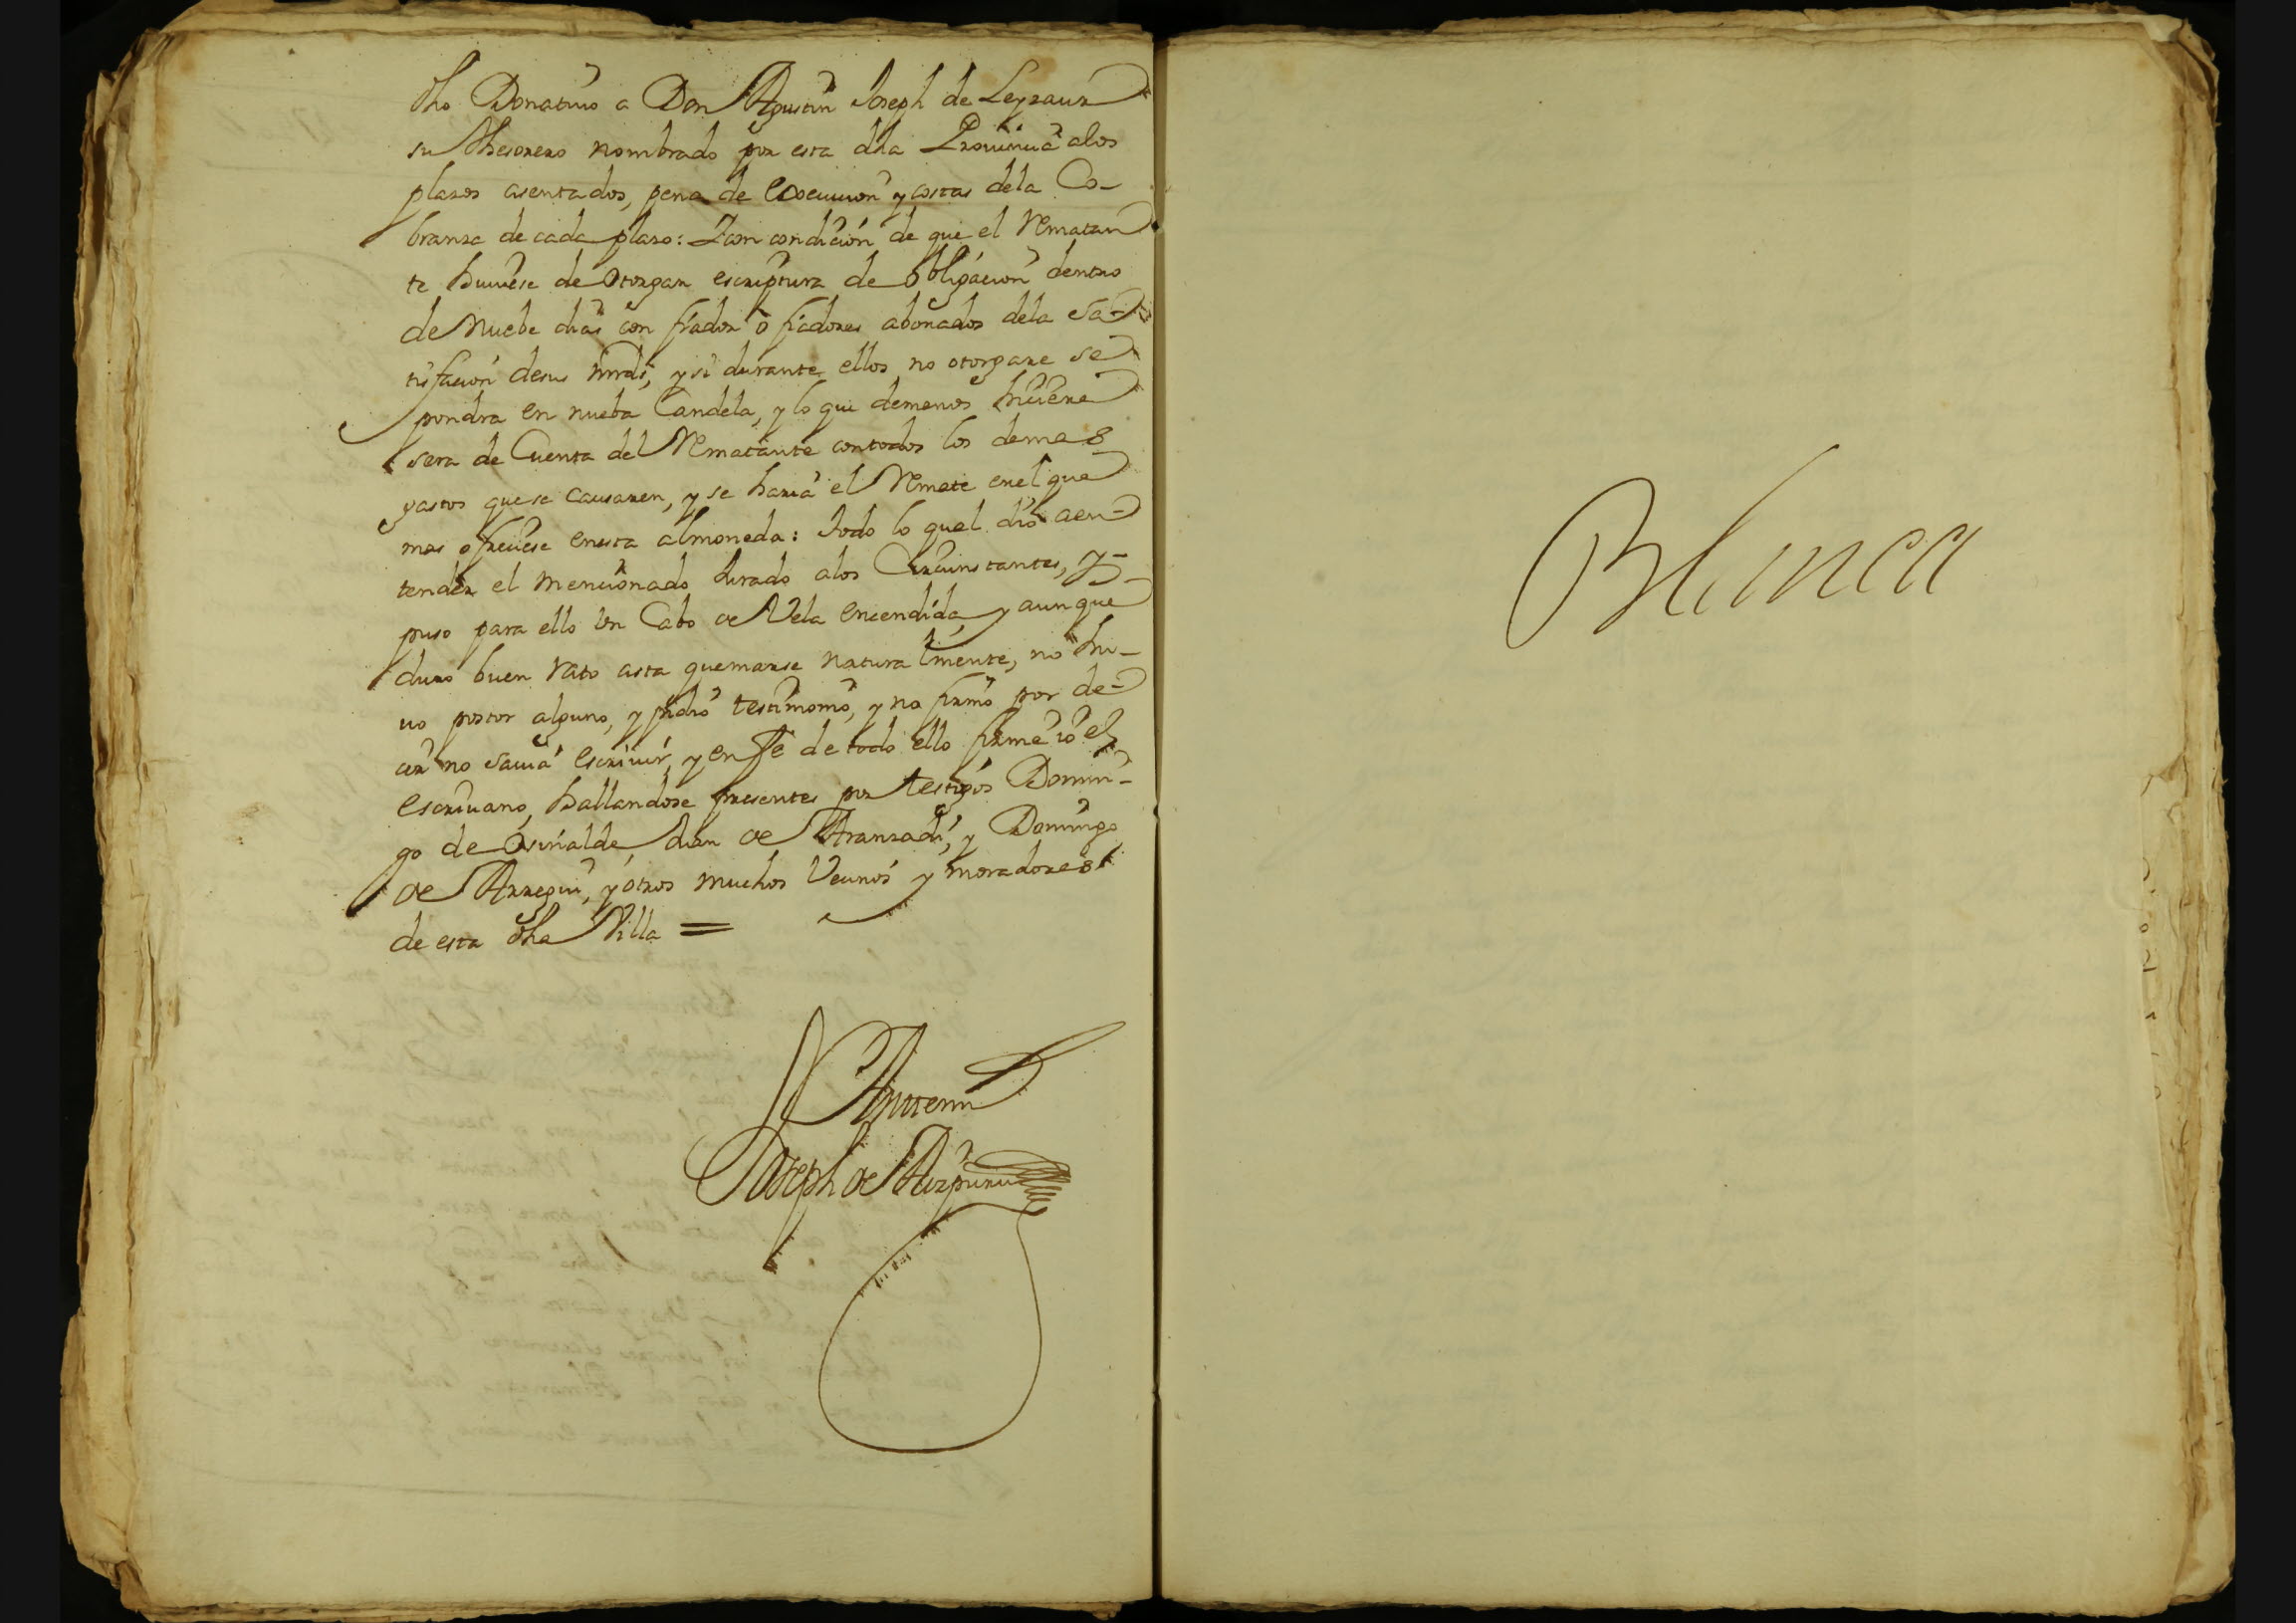 dho Donativo a Don Agustin Joseph de Leyzaur
su thesorero nombrado por esta dha Provincia alos
plazos asentados, pena de execucion y costas dela Co-
branza de cada plazo: Y con condicion de que el Rematan
te huviese de otorgar escriptura de obligacion dentro
de nuebe dias con fiador ó fiadores abonados dela sa-
tisfacion desus mrds, y si durante ellos no otorgare se
pondra en nueba Candela, y lo que demenos huviere
sera de Cuenta del Rematante contodos los demas
gastos quese causaren, y se haria el Remate enel que
mas ofreciese enesta almoneda: todo lo qual dió aen-
tender el mencionado Jurado alos Circunstantes, y
puso para ello Un Cabo de Vela encendida, y aunque
duró buen rato asta quemarse naturalmente, no hu-
vo postor alguno, y pidió testimonio, y no firmó por de-
cir no savia escrivir, y en fe de todo ello firmé io el
escrivano, hallandose presentes por testigos Domin-
go de Juan de Aranzadi, y Domingo
de Arregui, y otros muchos Vecinos y moradores
de esta dha Villa =
Joseph de Aizpuru
Blanca